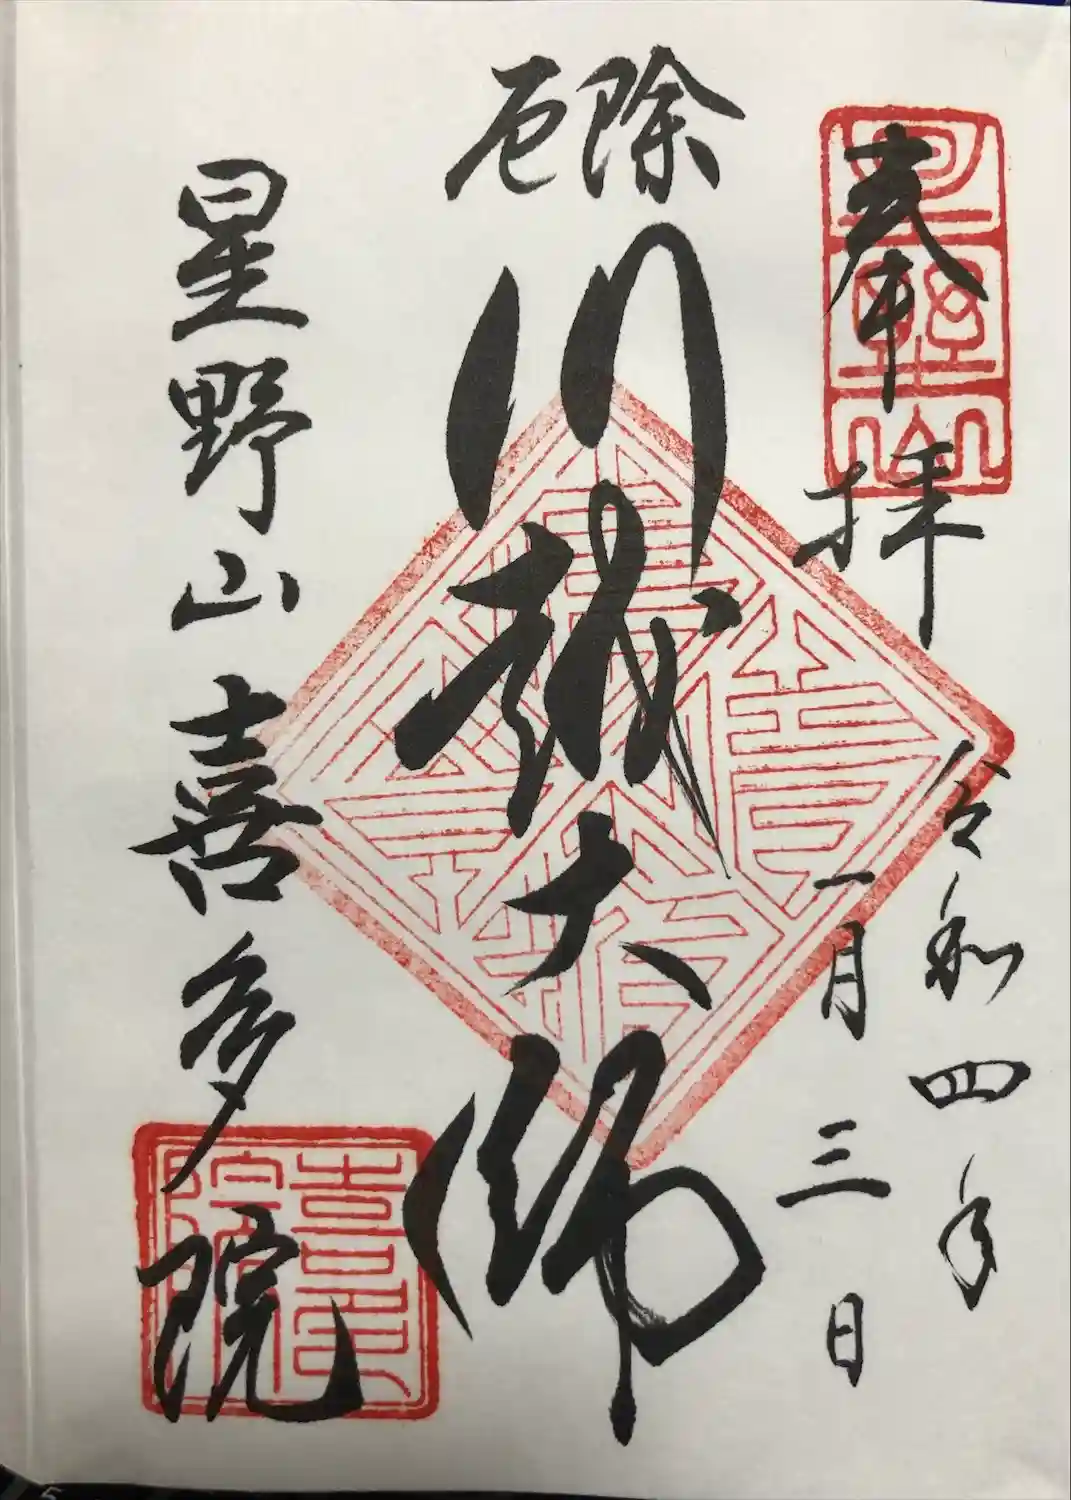 奉拝
令和四年
一月三日
厄除
川越大師
星野山喜多院
星野山
喜多院